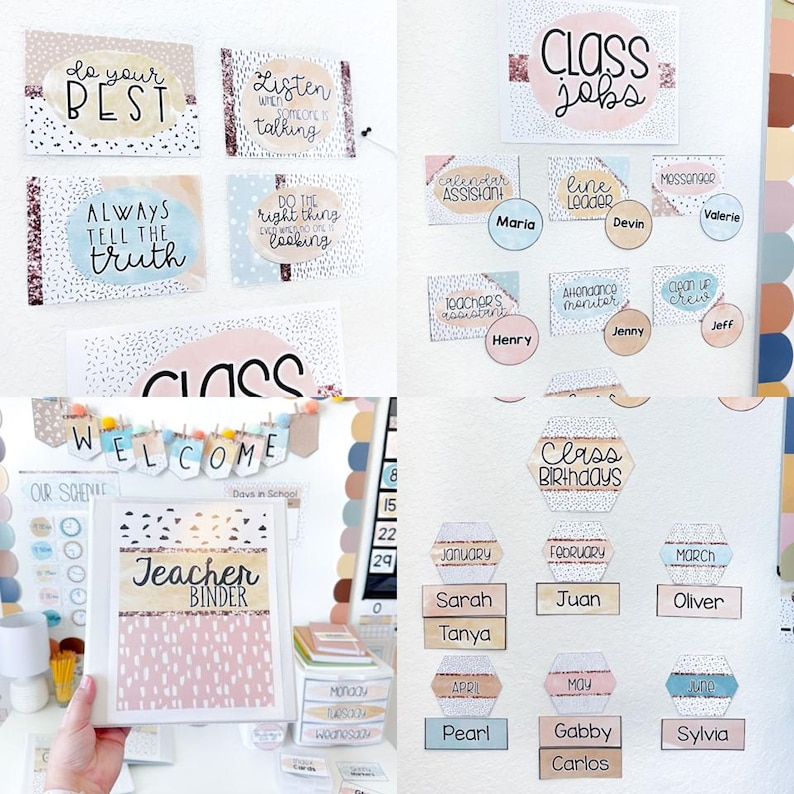 do your
BEST
Listen
WHEN
SOMEONE IS
talking
ALWAYS
TELL THE
truth
DO THE
right thing
EVEN WHEN NO ONE IS
looking
CLASS
CLASS
jobs
calendar
ASSISTANT
Maria
line
LEADER
Devin
MESSENGER
Valerie
TEACHER'S
assistant
Henry
Attendance
monitor
Jenny
CLEAN UP
crew
Jeff
WELCOME
OUR SCHEDULE
Days in School
Teacher
BINDER
8
15
22
29
0
Monday
Tuesday
Wednesday
Index
Cards
Class
BIRTHDAYS
JANUARY
Sarah
Tanya
FEBRUARY
Juan
MARCH
Oliver
APRIL
Pearl
MAY
Gabby
Carlos
June
Sylvia